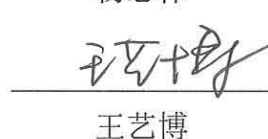 王艺博
王艺博